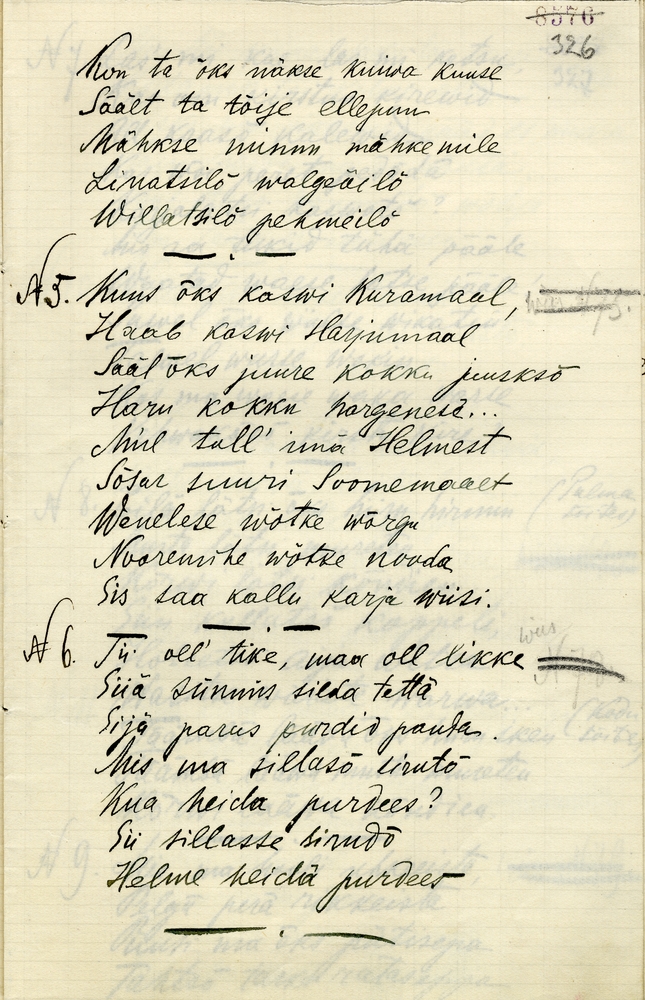 8576
326
Kon ta õks näkse kuiwa kuuse
Säält ta tõije ellepuu
Mähkse minnu mähkemile
Linatsilõ walgeilõ
Willatsilõ pehmeilõ
N 5. Kuus õks kaswi Kuramaal,
Haab kaswi Harjumaal
Sääl õks juure kokku juurksõ
Haru kokku hargenesi...
Mul tull' Helmest
Sõsar suuri Soomemaalt
Wenelese wõtke wõrgu
Nooremihe wõtke nooda
Sis saa kallu karja wiisi.
N 6. Tii oll' tike, maa oll likke
Siiä sünnis silda tettä
Sijä paras purdid panda.
Mis ma sillasõ sirutõ
Kua heida purdees?
Sii sillasse sirudõ
Helme heidä purdees